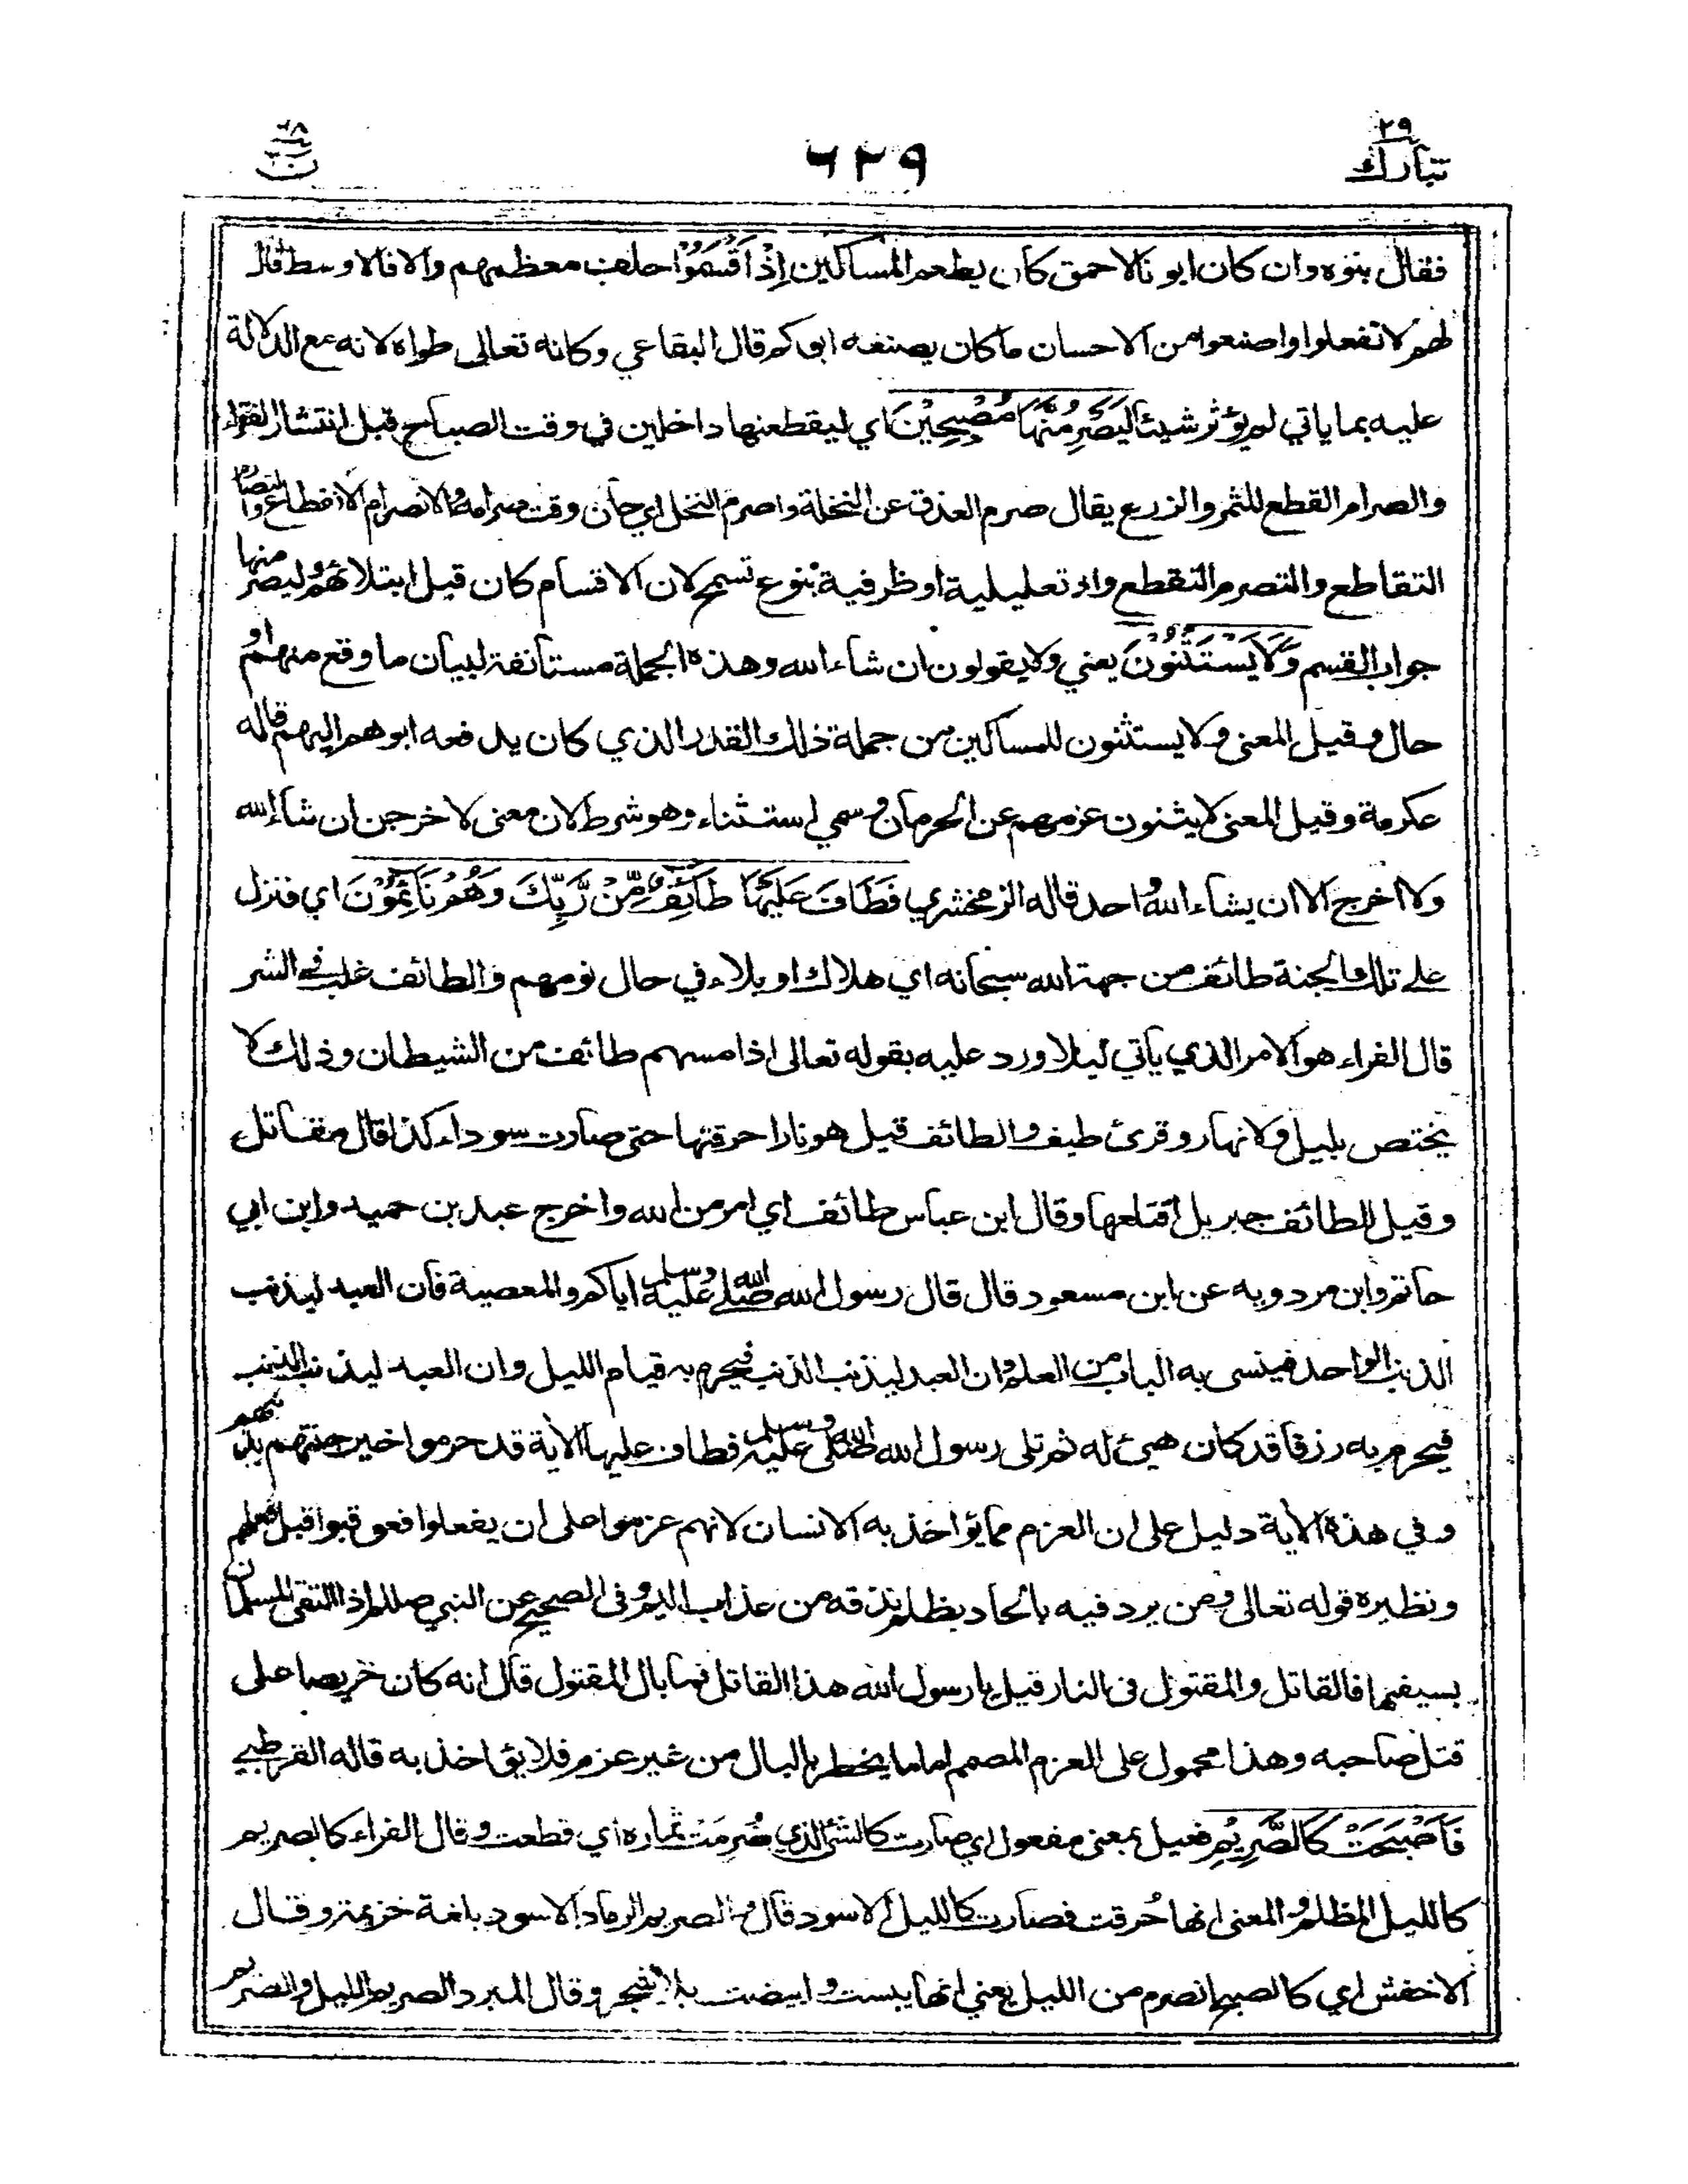 تبارك ٢٩
٦٢٩
ن ٦٨
فقال بنوه وان كان ابونا لاحمق كان يطعم المساكين اِذْ اَقْسَمُوْا حلف معظمهم والا فالاوسط قال
لهم لا تفعلوا واصنعوا من الاحسان ما كان يصنعه ابوكم قال البقاعي وكانه تعالى طواه لانه مع الدلالة
عليه بما ياتي لم يؤثر شيئا لَيَصْرِمُنَّهَا مُصْبِحِيْنَ اي ليقطعنها داخلين في وقت الصباح قبل انتشار الفقراء
والصرام القطع للثمر والزرع يقال صرم العذق عن النخلة واصرم النخل اي حان وقت صرامه والانصرام الانقطاع والتصارم
التقاطع والتصرم التقطع واذ تعليلية او ظرفية بنوع تسمح لان الاقسام كان قبل ابتلائهم وليصرمنها
جواب القسم وَلَا يَسْتَثْنُوْنَ يعني ولا يقولون ان شاء الله وهذه الجملة مستانفة لبيان ما وقع منهم او
حال وقيل المعنى ولا يستثنون للمساكين من جملة ذلك القدر الذي كان يدفعه ابوهم اليهم قاله
عكرمة وقيل المعنى لا يثنون عزمهم عن الحرمان وسمي استثناء وهو شرط لان معنى لاخرجن ان شاء الله
ولا اخرج الا ان يشاء الله واحد قاله الزمخشري فَطَافَ عَلَيْهَا طَآئِفٌ مِّنْ رَّبِّكَ وَهُمْ نَآئِمُوْنَ اي فنزل
على تلك الجنة طائف من جهة الله سبحانه اي هلاك او بلاء في حال نومهم والطائف غلب في الشر
قال الفراء هو الامر الذي ياتي ليلا ورد عليه بقوله تعالى اذا مسهم طائف من الشيطان وذلك لا
يختص بليل ولا نهار وقرئ طيف والطائف قيل هو نار احرقتها حتى صارت سوداء كذا قال مقاتل
وقيل الطائف جبريل اقتلعها وقال ابن عباس طائف اي امر من الله واخرج عبد بن حميد وابن ابي
حاتم وابن مردويه عن ابن مسعود قال قال رسول الله صلى الله عليه وسلم اياكم والمعصية فان العبد ليذنب
الذنب الواحد فينسى به الباب من العلم وان العبد ليذنب الذنب فيحرم به قيام الليل وان العبد ليذنب الذنب
فيحرم به رزقا قد كان هيئ له ثم تلى رسول الله صلى الله عليه وسلم فطاف عليها الآية قد حرموا خير جنتهم بذنبهم
وفي هذه الآية دليل على ان العزم مما يؤاخذ به الانسان لانهم عزموا على ان يفعلوا فعوقبوا قبل فعلهم
ونظيره قوله تعالى ومن يرد فيه بالحاد بظلم نذقه من عذاب اليم وفى الصحيح عن النبي صللم اذا التقى المسلمان
بسيفيهما فالقاتل والمقتول فى النار قيل يا رسول الله هذا القاتل فما بال المقتول قال انه كان حريصا على
قتل صاحبه وهذا محمول على العزم المصمم اما ما يخطر بالبال من غير عزم فلا يؤاخذ به قاله القرطبي
فَاَصْبَحَتْ كَالصَّرِيْمِ فعيل بمعنى مفعول اي صارت كالشئ الذي صُرِمَتْ ثماره اي قطعت وقال الفراء كالصريم
كالليل المظلم والمعنى انها حُرقت فصارت كالليل الاسود قال والصريم الرماد الاسود بلغة خزيمة وقال
الاخفش اي كالصبح انصرم من الليل يعني انها يبست وابيضت بلا شجر وقال المبرد الصريم الليل والصريم